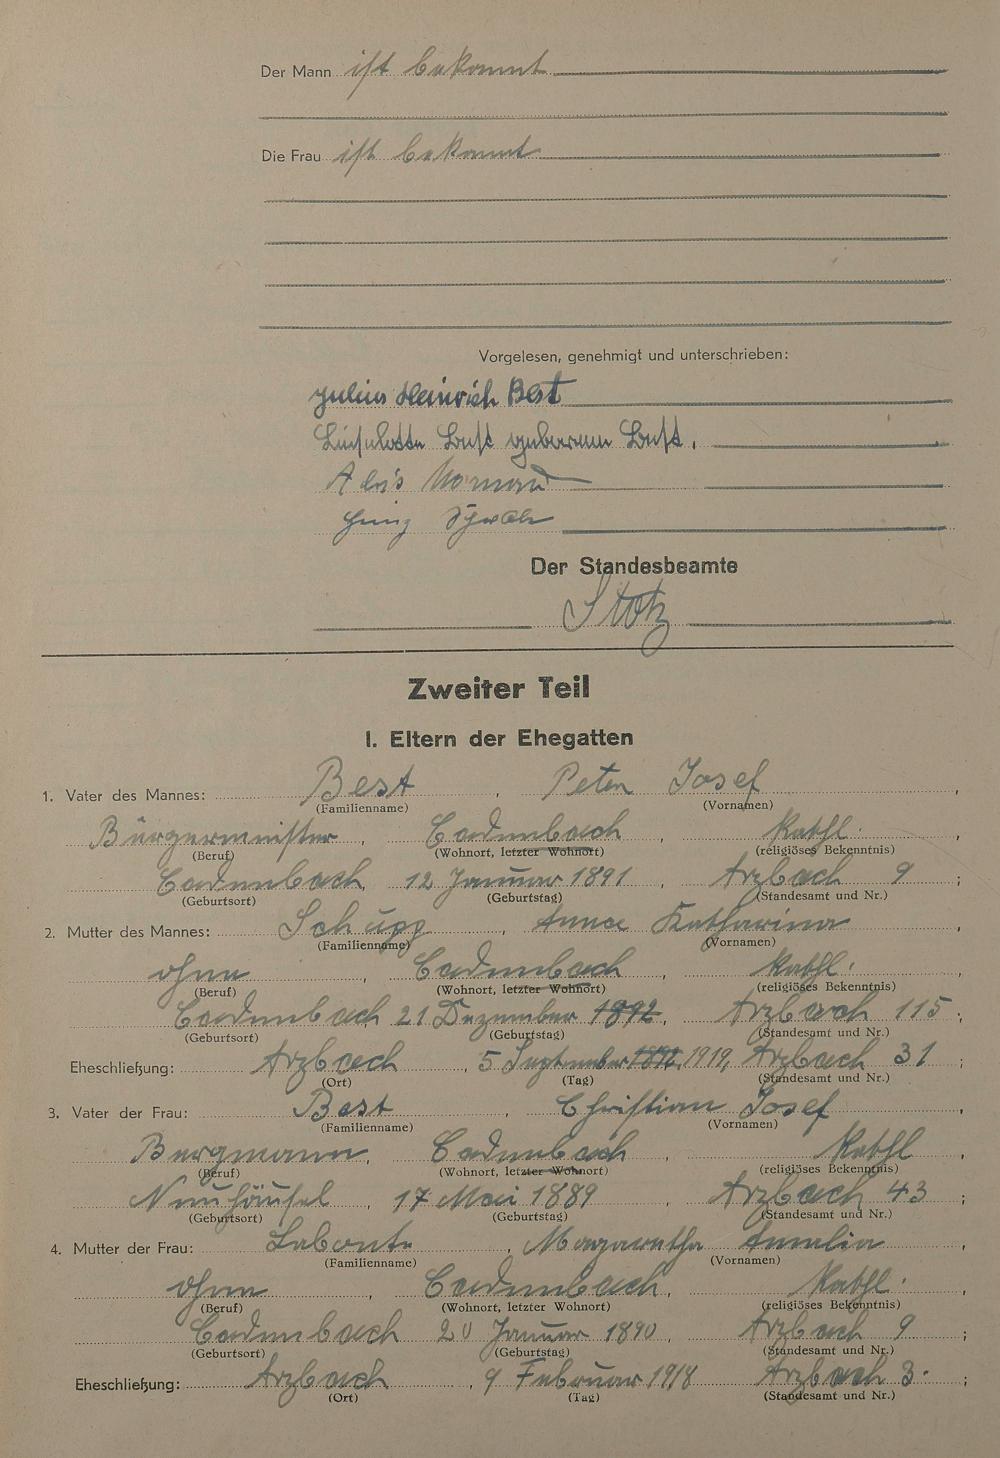 Der Mann ist bekannt
Die Frau ist bekannt
Vorgelesen, genehmigt und unterschrieben:
Julius Heinrich Best
Liselotte Best geborene Best.
Alois
Der Standesbeamte
Stotz
Zweiter Teil
I. Eltern der Ehegatten
1. Vater des Mannes: Best, Peter Josef,
(Familienname) (Vornamen)
Bürgermeister, Cadenbach, kathl.,
(Beruf) (Wohnort, letzter Wohnort) (religiöses Bekenntnis)
Cadenbach, 12 Januar 1891, Arzbach 9;
(Geburtsort) (Geburtstag) (Standesamt und Nr.)
2. Mutter des Mannes: Schupp, Anna Katharina,
(Familienname) (Vornamen)
ohne, Cadenbach, kathl.,
(Beruf) (Wohnort, letzter Wohnort) (religiöses Bekenntnis)
Cadenbach 21 Dezember 1892, Arzbach 115;
(Geburtsort) (Geburtstag) (Standesamt und Nr.)
Eheschließung: Arzbach, 5 September 1892, 1919, Arzbach 31;
(Ort) (Tag) (Standesamt und Nr.)
3. Vater der Frau: Best, Christian Josef,
(Familienname) (Vornamen)
Bergmann, Cadenbach, kathl,
(Beruf) (Wohnort, letzter Wohnort) (religiöses Bekenntnis)
Neuhäusel, 17 Mai 1889, Arzbach 43;
(Geburtsort) (Geburtstag) (Standesamt und Nr.)
4. Mutter der Frau: Labonte, Margaretha Amalia,
(Familienname) (Vornamen)
ohne, Cadenbach, kathl.,
(Beruf) (Wohnort, letzter Wohnort) (religiöses Bekenntnis)
Cadenbach 20 Januar 1890, Arzbach 9;
(Geburtsort) (Geburtstag) (Standesamt und Nr.)
Eheschließung: Arzbach, 9 Februar 1918 Arzbach 3.;
(Ort) (Tag) (Standesamt und Nr.)